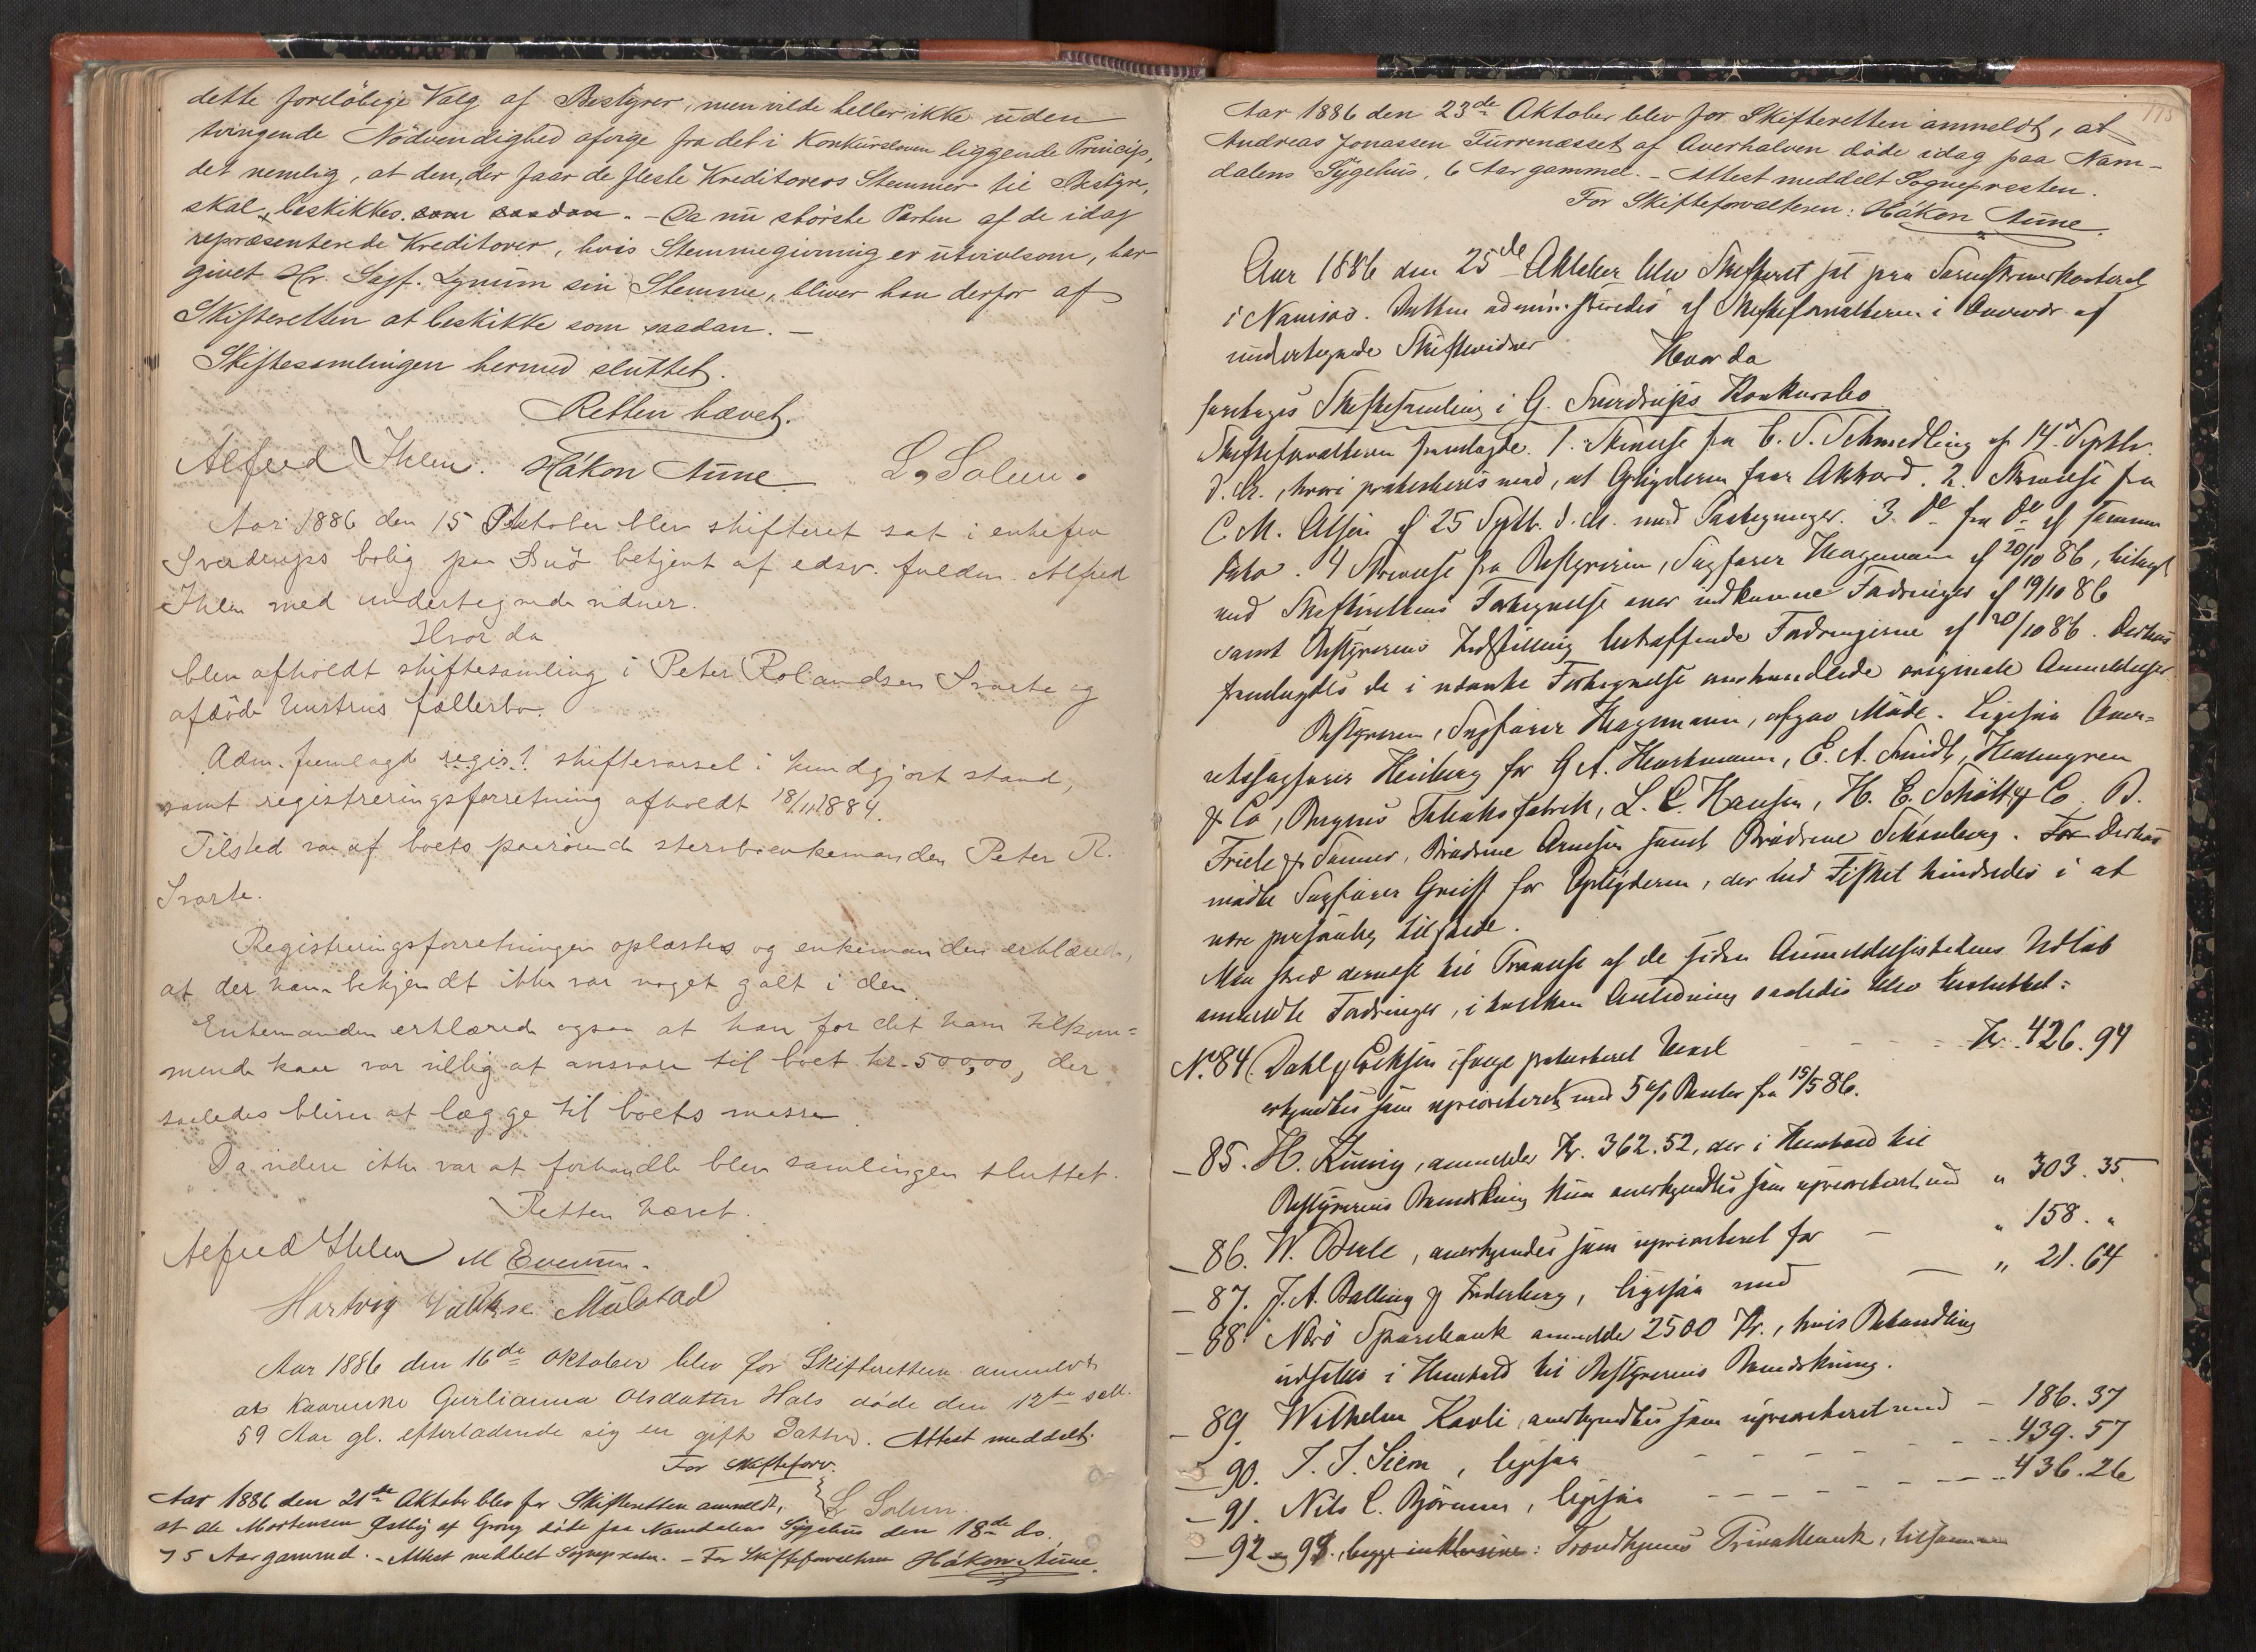 dette foreløbige Valg af Bestyrer, men vilde heller ikke uden
tvingende Nødvendighed afvige fra det i Konkursloven liggende Princip,
det nemlig, at den, der faar de fleste Kreditorers Stemmer til Bestyr,
skal beskikkes som saadan. - Da nu største Parten af de idag
repræsenterede Kreditorer, hvis Stemmegivning er utvivlsom, har
givet Hr. Sagf. Lynum sin Stemme, bliver han derfor af
Skifteretten at beskikke som saadan. -
Skiftesamlingen hermed sluttet.
Retten hævet.
Alfred Ihlen. Håkon Aune. L. Solem.
Aar 1886 den 15 Oktober blev skifteret sat i enkefru
Sverdrups bolig paa Buø betjent af edsv. fuldm. Alfred
Ihlen med undertegnede vidner.
Hvor da
blev afholdt skiftesamling i Peter Rolandsen Svarte og
afdøde hustrus fællesbo.
Adm. fremlagde regis! skiftevarsel i kundgjort stand,
samt registreringsforretning afholdt 18/11 1884.
Tilsted var af boets paarørende stervboenkemanden Peter R.
Svarte.
Registreringsforretningen oplæstes og enkemanden erklærede,
at der ham bekjendt ikke var noget galt i den.
Enkemanden erklærede ogsaa at han for det ham tilkom=
mende kaar var villig at ansvare til boet kr. 500,00, der
saaledes bliver at lægge til boets masse.
Da videre ikke var at forhandle blev samlingen sluttet.
Retten hævet.
Alfred Ihlen M Evensen.
Hartvig Mülstad
Aar 1886 den 16de Oktober blev for Skifteretten anmeldt
at Gurlianna Olsdatter Hals døde den 12te
59 Aar gl. efterladende sig en gift Datter. Attest meddelt.
For Skifteforv.
L Solem.
Aar 1886 den 21de Oktober blev for Skifteretten anmeldt,
at Ole Mortensen Østby af Grong døde paa Namdalens Sygehus den 18de ds.
75 Aar gammel. - Attest meddelt Sognepresten. - For Skifteforvalteren Håkon Aune.
115
Aar 1886 den 23de Oktober blev for Skifteretten anmeldt, at
Andreas Jonassen Furrenæsset af Overhalven døde idag paa Nam-
dalens Sygehus, 6 Aar gammel. - Attest meddelt Sognepresten.
For Skifteforvalteren: Håkon Aune.
Aar 1886 den 25de Oktober blev Skifteret sat paa Sorenskriverkontoret
i Namsos. Retten administreredes af Skifteforvalteren i Overvær af
undertegnede Skiftevidner
Hvor da
foretoges Skiftesamling i G. Sverdrups Konkursbo
Skifteforvalteren fremlagde. 1. Skrivelse fra C. S. Schmedling af 14de Septbr.
d. A., hvori protesteres mod, at Opbyderen faar Akkord. 2. Skrivelse fra
C. M. Olsen af 25 Septb. d. A. med Paategninger. 3. do fra do af samme
Dato. 4 Skrivelse fra Bestyreren, Sagfører Hagemann af 20/10 86, bilagt
med Skifterettens Fortegnelse over indkomne Fordringer af 19/10 86
samt Bestyrerens Indstilling betræffende Fordringerne af 20/10 86. Derhos
fremlagdes de i nævnte Fortegnelse omhandlede originale Anmeldelser.
Bestyreren, Sagfører Hagemann, afgav Møde. Ligesaa Over=
retssagfører Heiberg for G A. Hartmann, E. A. Smidt, Holmgren
& Co, Bergens Tobaksfabrik, L. C. Hansen, H. E. Schøtt & Co B.
Friele & Sønner, Brødrene Arnesen samt Brødrene Schønberg. For Derhos
mødte Sagfører Greiff for Opbyderen, der ved Fisket hindredes i at
være personlig tilstede.
Man skred dernæst til Prøvelse af de siden Anmeldelsestidens Udløb
anmeldte Fordringer, i hvilken Anledning saaledes blev besluttet:
No 84. Dahl & Eriksen ifølge protesteret Vexel Kr. 426.94
erkjendtes som uprioriteret med 5 % Renter fra 15/5 86.
- 85. H. König, anmelder Kr. 362.52, der i Henhold til
Bestyrerens Bemærkning kun anerkjendtes som uprioriteret med " 303.35.
- 86. W. Berle, anerkjendes som uprioriteret for " 158. "
- 87. J. A. Balling & Soderberg, ligesaa med " 21.64
- 88. Nærø Sparebank anmelder 2500 Kr., hvis Behandling
udsattes i Henhold til Bestyrerens Bemærkning.
- 89. Wilhelm Kavli, anerkjendtes som uprioriteret med - 186.37
- 90. T. J. Siem, ligesaa - 439.57
- 91. Nils C. Bjørum, ligesaa - 436.26
- 92 - 98. begge inklusive: Trondhjems Privatbank, tilsammen